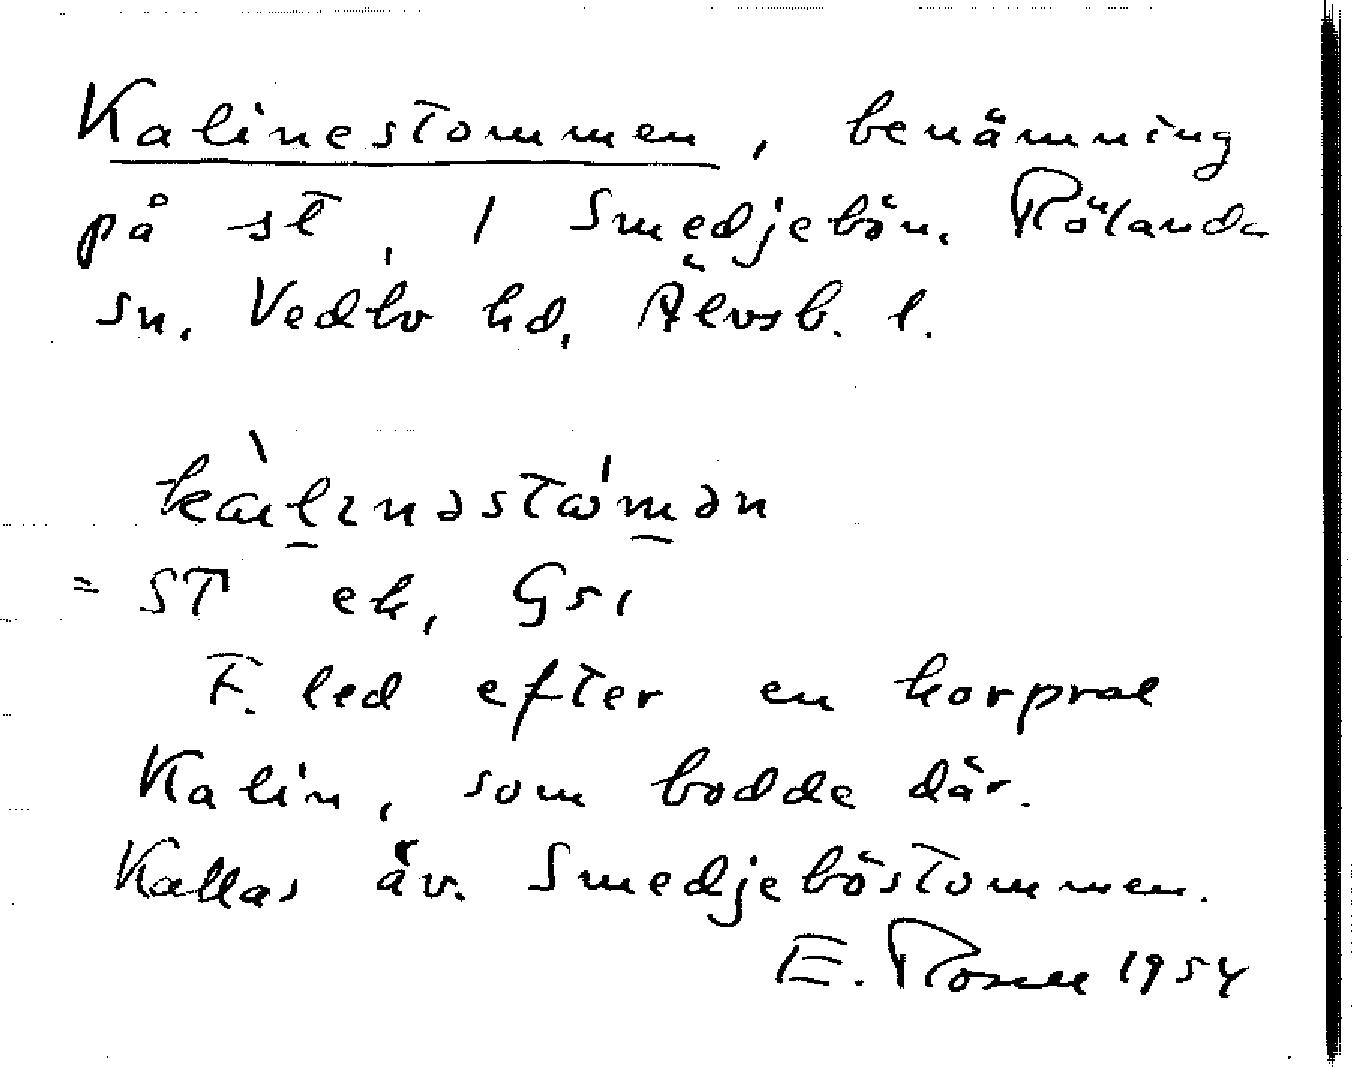 Kalinestommen, benämning
på st, 1 Smedjebön, Rölanda
sn, Vedbo hd, Älvsb. l.
kàlinəstωmən
= ST ek, Gs1
F. led efter en korpral
Kalin, som bodde där.
Kallas äv. Smedjeböstommen.
E. Rosell 1954